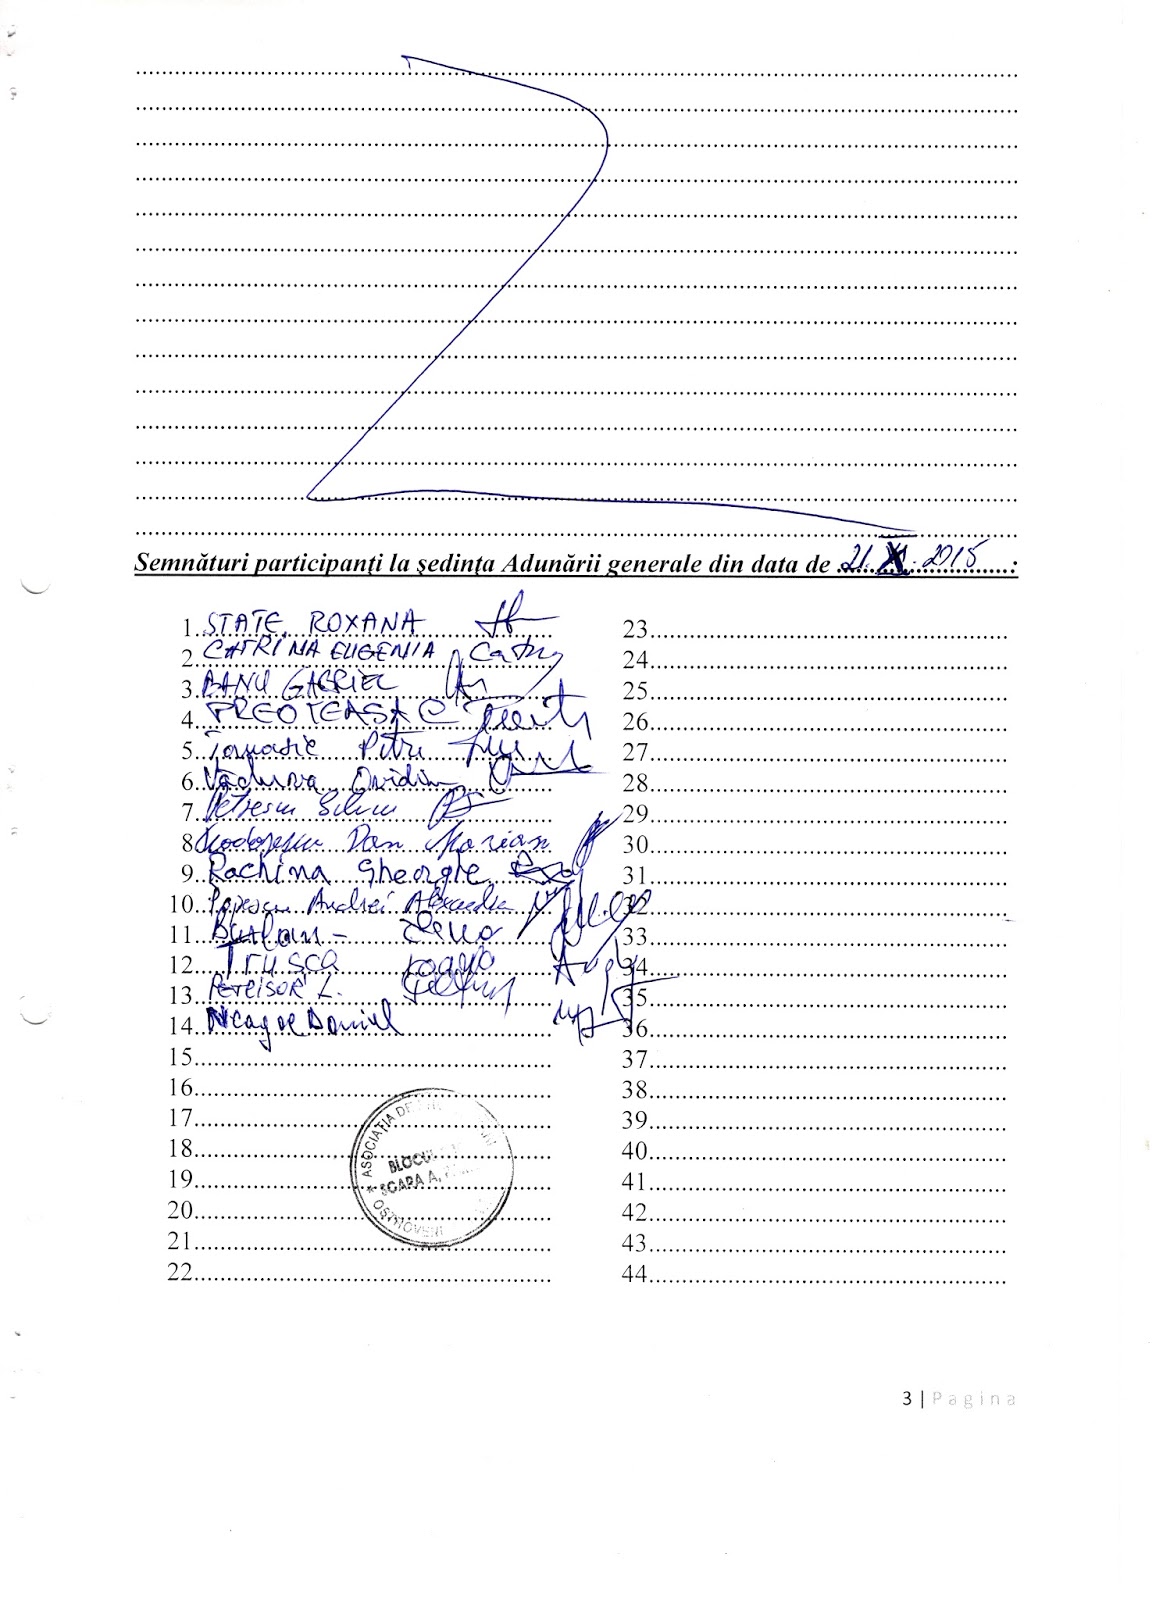 Semnături participanți la ședința Adunării generale din data de 21. X. 2015:
1. STATE ROXANA
2. CATRINA EUGENIA
3. BANU GABRIEL
4. PREOTEASA C
5. Petru
6. Văduva Ovidiu
7. Petrescu Silviu
8. Teodorescu Dan Marian
9. Rachina Gheorghe
10. Popescu Andrei Alexandru
11.
12. Trusca Ioana
13. PETRISOR L.
14. Neagoe Daniel
15
16
17
18
19
20
21
22
23
24
25
26
27
28
29
30
31
32
33
34
35
36
37
38
39
40
41
42
43
44
ASOCIAȚIA DE
BLOCUL
SCARA A,
OSTROVENI
3 | Pagina